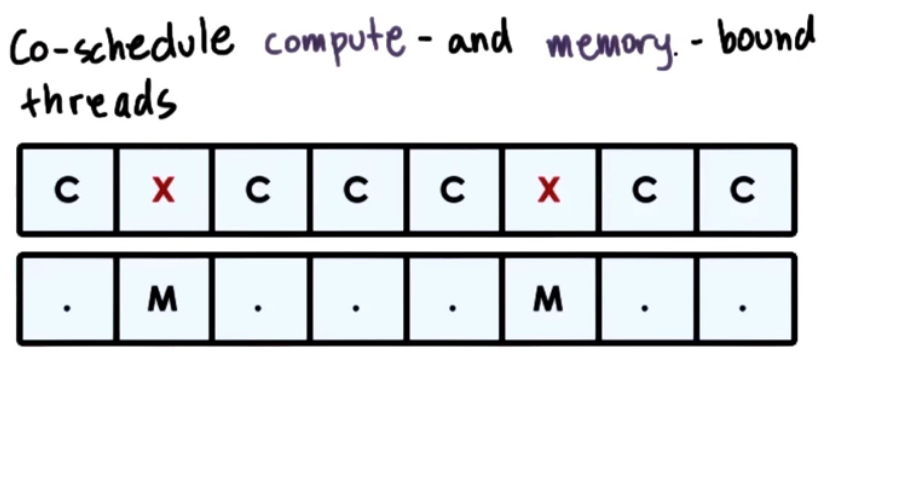 Co-schedule compute - and memory. - bound
threads
C X C C C X C C
. M . . . M . .